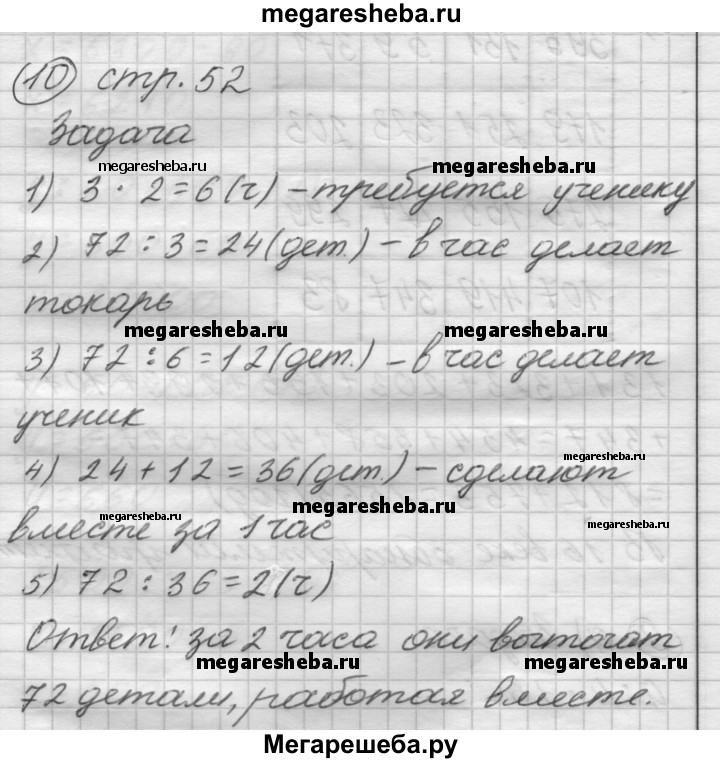 megaresheba.ru
10 стр. 52
Задача
megaresheba.ru megaresheba.ru
1) 3 · 2 = 6 (ч) – требуется ученику
2) 72 : 3 = 24 (дет.) – в час делает
токарь
megaresheba.ru megaresheba.ru
3) 72 : 6 = 12 (дет.) – в час делает
ученик
megaresheba.ru
4) 24 + 12 = 36 (дет.) – сделают
megaresheba.ru megaresheba.ru megaresheba.ru
вместе за 1 час
5) 72 : 36 = 2 (ч)
Ответ: за 2 часа они выточат
megaresheba.ru megaresheba.ru
72 детали, работая вместе.
Мегарешеба.ру